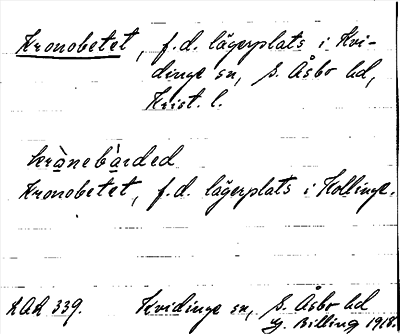 Kronobetet, f.d. lägerplats i Kvi-
dinge sn, S. Åsbo hd,
Krist. l.
krànebàrded
Kronobetet, f.d. lägerplats i Kollinge.
LAL 339. Kvidinge sn, S. Åsbo hd
G. Billing 1918.